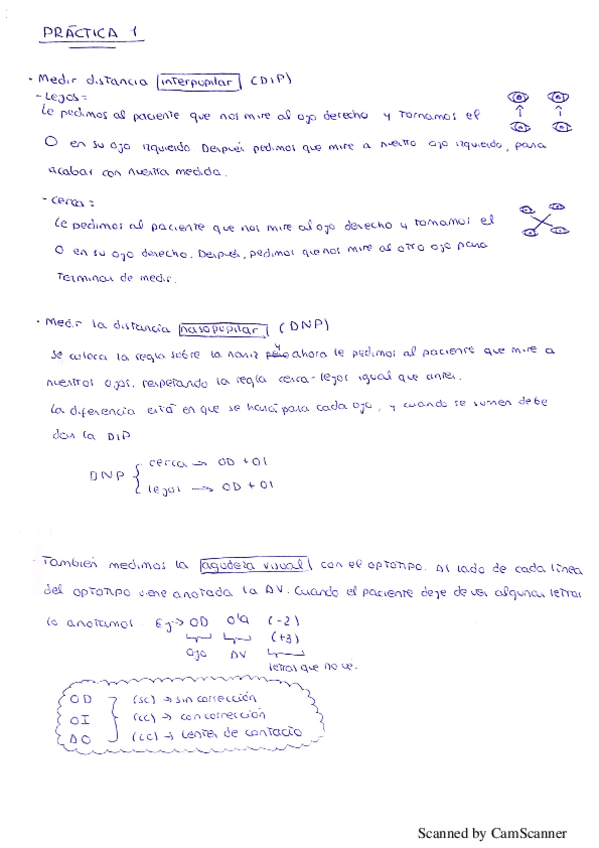 PRÁCTICA 1
· Medir distancia interpupilar (DIP)
- Lejos:
Le pedimos al paciente que nos mire al ojo derecho y tomamos el
O en su ojo izquierdo. Después pedimos que mire a nuestro ojo izquierdo, para
acabar con nuestra medida.
- cerca:
Le pedimos al paciente que nos mire al ojo derecho y tomamos el
O en su ojo derecho. Después, pedimos que nos mire al otro ojo para
terminar de medir.
· Medir la distancia nasopupilar (DNP)
Se coloca la regla sobre la nariz y ahora le pedimos al paciente que mire a
nuestros ojos, respetando la regla cerca-lejos igual que antes.
La diferencia está en que se hará para cada ojo, y cuando se sumen debe
dar la DIP
DNP { cerca → OD + OI
lejos → OD + OI
También medimos la agudeza visual con el optotipo. Al lado de cada línea
del optotipo viene anotada la AV. Cuando el paciente deje de ver algunas letras
lo anotamos. Ej → OD 0'9 (-2)
(+3)
ojo AV letras que no ve.
OD (sc) → sin corrección
OI (cc) → con corrección
AO (LC) → Lentes de contacto
Scanned by CamScanner